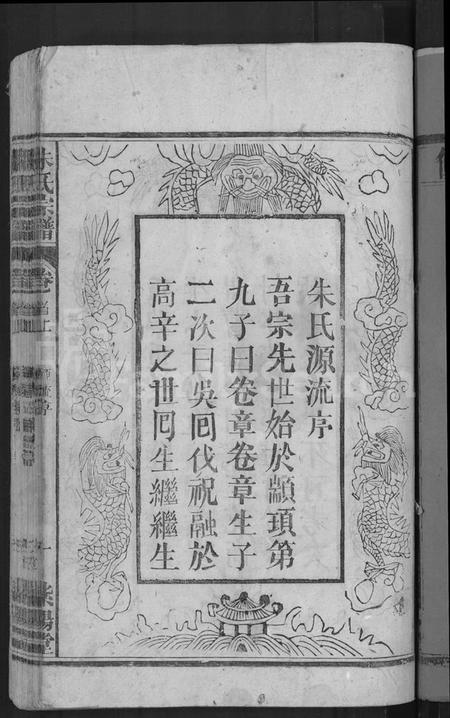 朱氏源流序
吾宗先世始於顓頊第
九子曰卷章卷章生子
二次曰吳回伐祝融於
高辛之世囘生繼繼生
朱氏宗譜
卷首上
源流序
一
紫陽堂